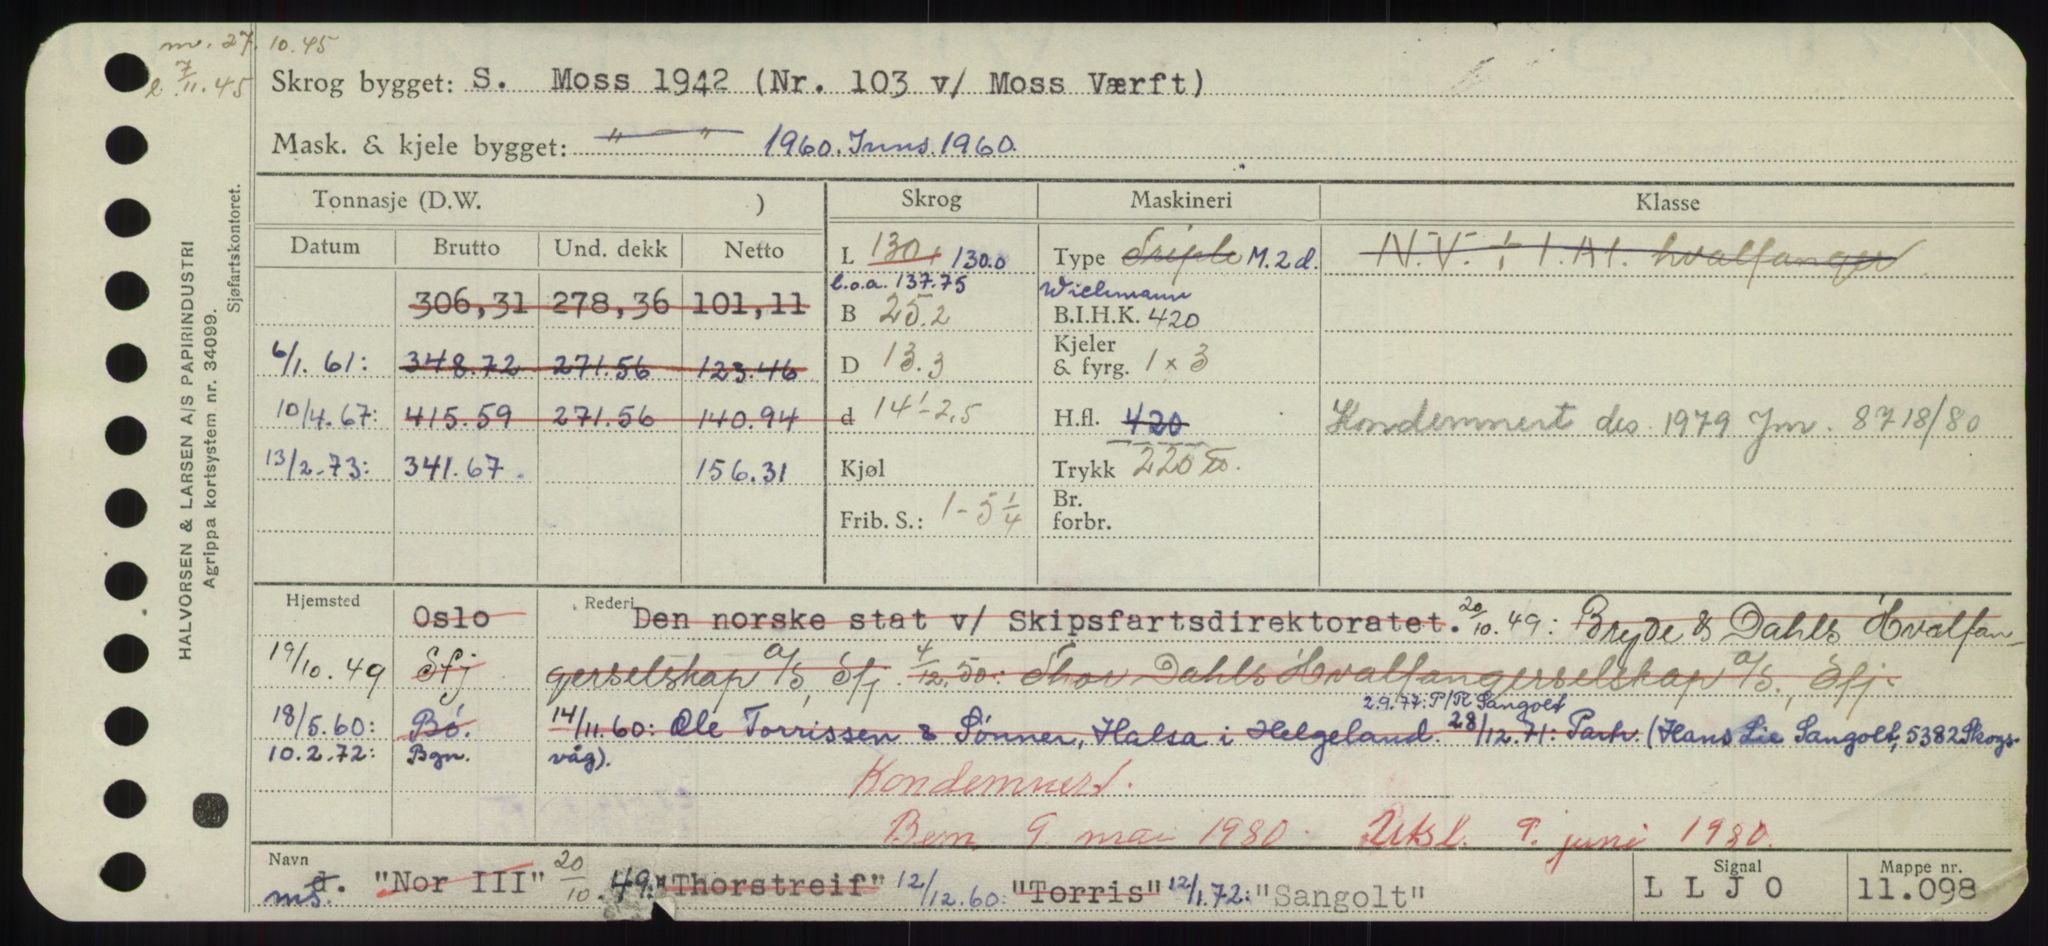 m. 27.10.45
k 7/11.45
Skrog bygget: S. Moss 1942 (Nr. 103 v/ Moss Værft)
Mask. & kjele bygget: " — " 1960. Inns. 1960.
HALVORSEN & LARSEN A/S PAPIRINDUSTRI
Agrippa kortsystem nr. 34099.
Sjøfartskontoret.
Tonnasje (D.W. ) Skrog Maskineri Klasse
Datum Brutto Und. dekk Netto
L 130+ 130.0 Type Triple M. 2 d. N.V. + 1.A1. hvalfanger
l.o.a. 137.75 Wichmann
306,31 278,36 101,11 B 25.2 B.I.H.K. 420
6/1. 61: 348.72 271.56 123.46 D 13.3 Kjeler & fyrg. 1 x 3
10/4. 67: 415.59 271.56 140.94 d 14'-2,5 H.fl. 420 Kondemnert des 1979 Jnr. 8718/80
13/2-73: 341.67 156.31 Kjøl Trykk 220
Frib. S.: 1-5 1/4 Br. forbr.
Hjemsted Oslo Rederi Den norske stat v/ Skipsfartsdirektoratet. 20/10. 49: Bryde & Dahls Hvalfan-
19/10. 49 Sfj gerselskap A/S, Sfj. 4/12. 50: Thor Dahls Hvalfangerselskap A/S, Sfj.
2.9.77: P/R Sangolt
18/5. 60: Bø. 14/11. 60: Ole Torrissen & Sønner, Halsa i Helgeland. 28/12. 71: Partr. (Hans Lie Sangolt, 5382 Skogs-
10.2.72: Bgn. våg).
Kondemnert.
Bem. 9 mai 1980. Utsl. 9. juni 1980.
Navn Signal Mappe nr.
d. ms. "Nor III" 20/10. 49: "Thorstreif" 12/12. 60: "Torris" 12/1. 72: "Sangolt" L L J O 11.098